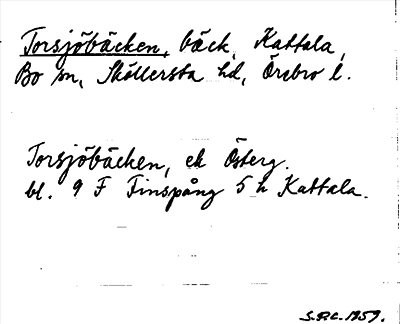 Torsjöbäcken, bäck, Kattala,
Bo sn, Sköllersta hd, Örebro l.
Torsjöbäcken, ek Österg.
bl. 9 F Finspång 5 h Kattala.
S.R.C. 1959.